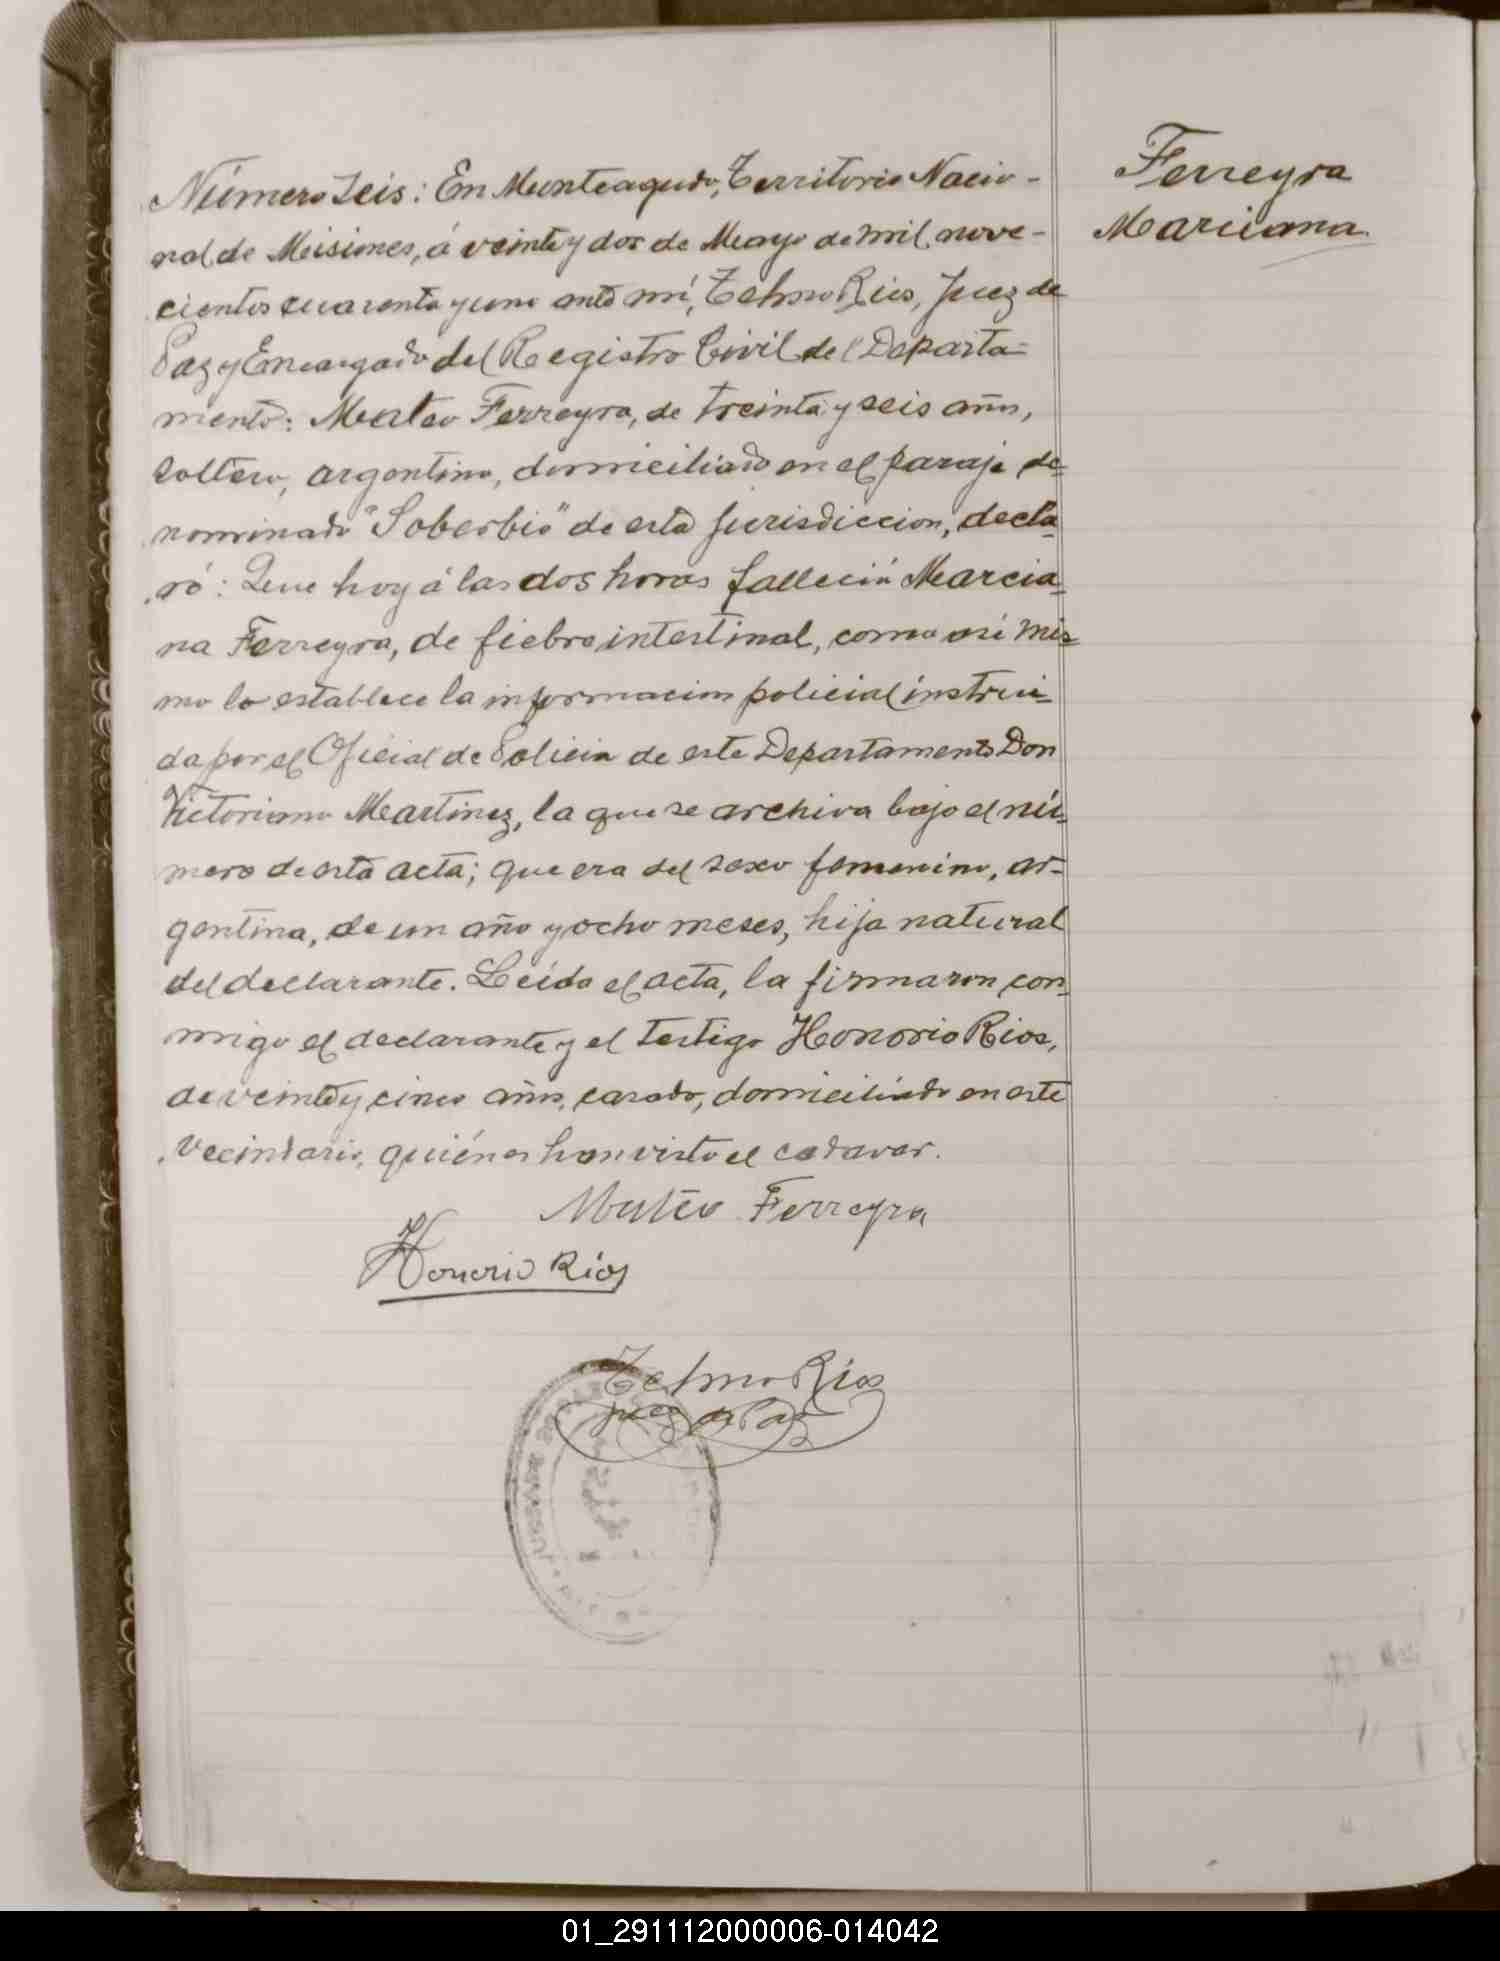 Número seis: En Monteagudo, Territorio Nacio-
nal de Misiones, á veinte y dos de Mayo de mil nove-
cientos cuarenta y uno ante mí, Telmo Rios, Juez de
Paz y Encargado del Registro Civil del Departa-
mento: Mateo Ferreyra, de treinta y seis años,
soltero, argentino, domiciliado en el paraje de-
nominado "Soberbio" de esta jurisdiccion, decla-
ró: Que hoy á las dos horas falleció Marcia-
na Ferreyra, de fiebre intestinal, como asi mis-
mo lo establece la informacion policial instrui-
da por el Oficial de Policia de este Departamento Don
Victoriano Martinez, la que se archiva bajo el nú-
mero de esta acta; que era del sexo femenino, ar-
gentina, de un año y ocho meses, hija natural
del declarante. Leída el acta, la firmaron con-
migo el declarante y el testigo Honorio Rios,
de veinte y cinco años, casado, domiciliado en este
vecindario, quiénes han visto el cadaver.
Mateo Ferreyra
Honorio Ríos
Telmo Ríos
Juez de Paz
Ferreyra
Marciana
01_291112000006-014042